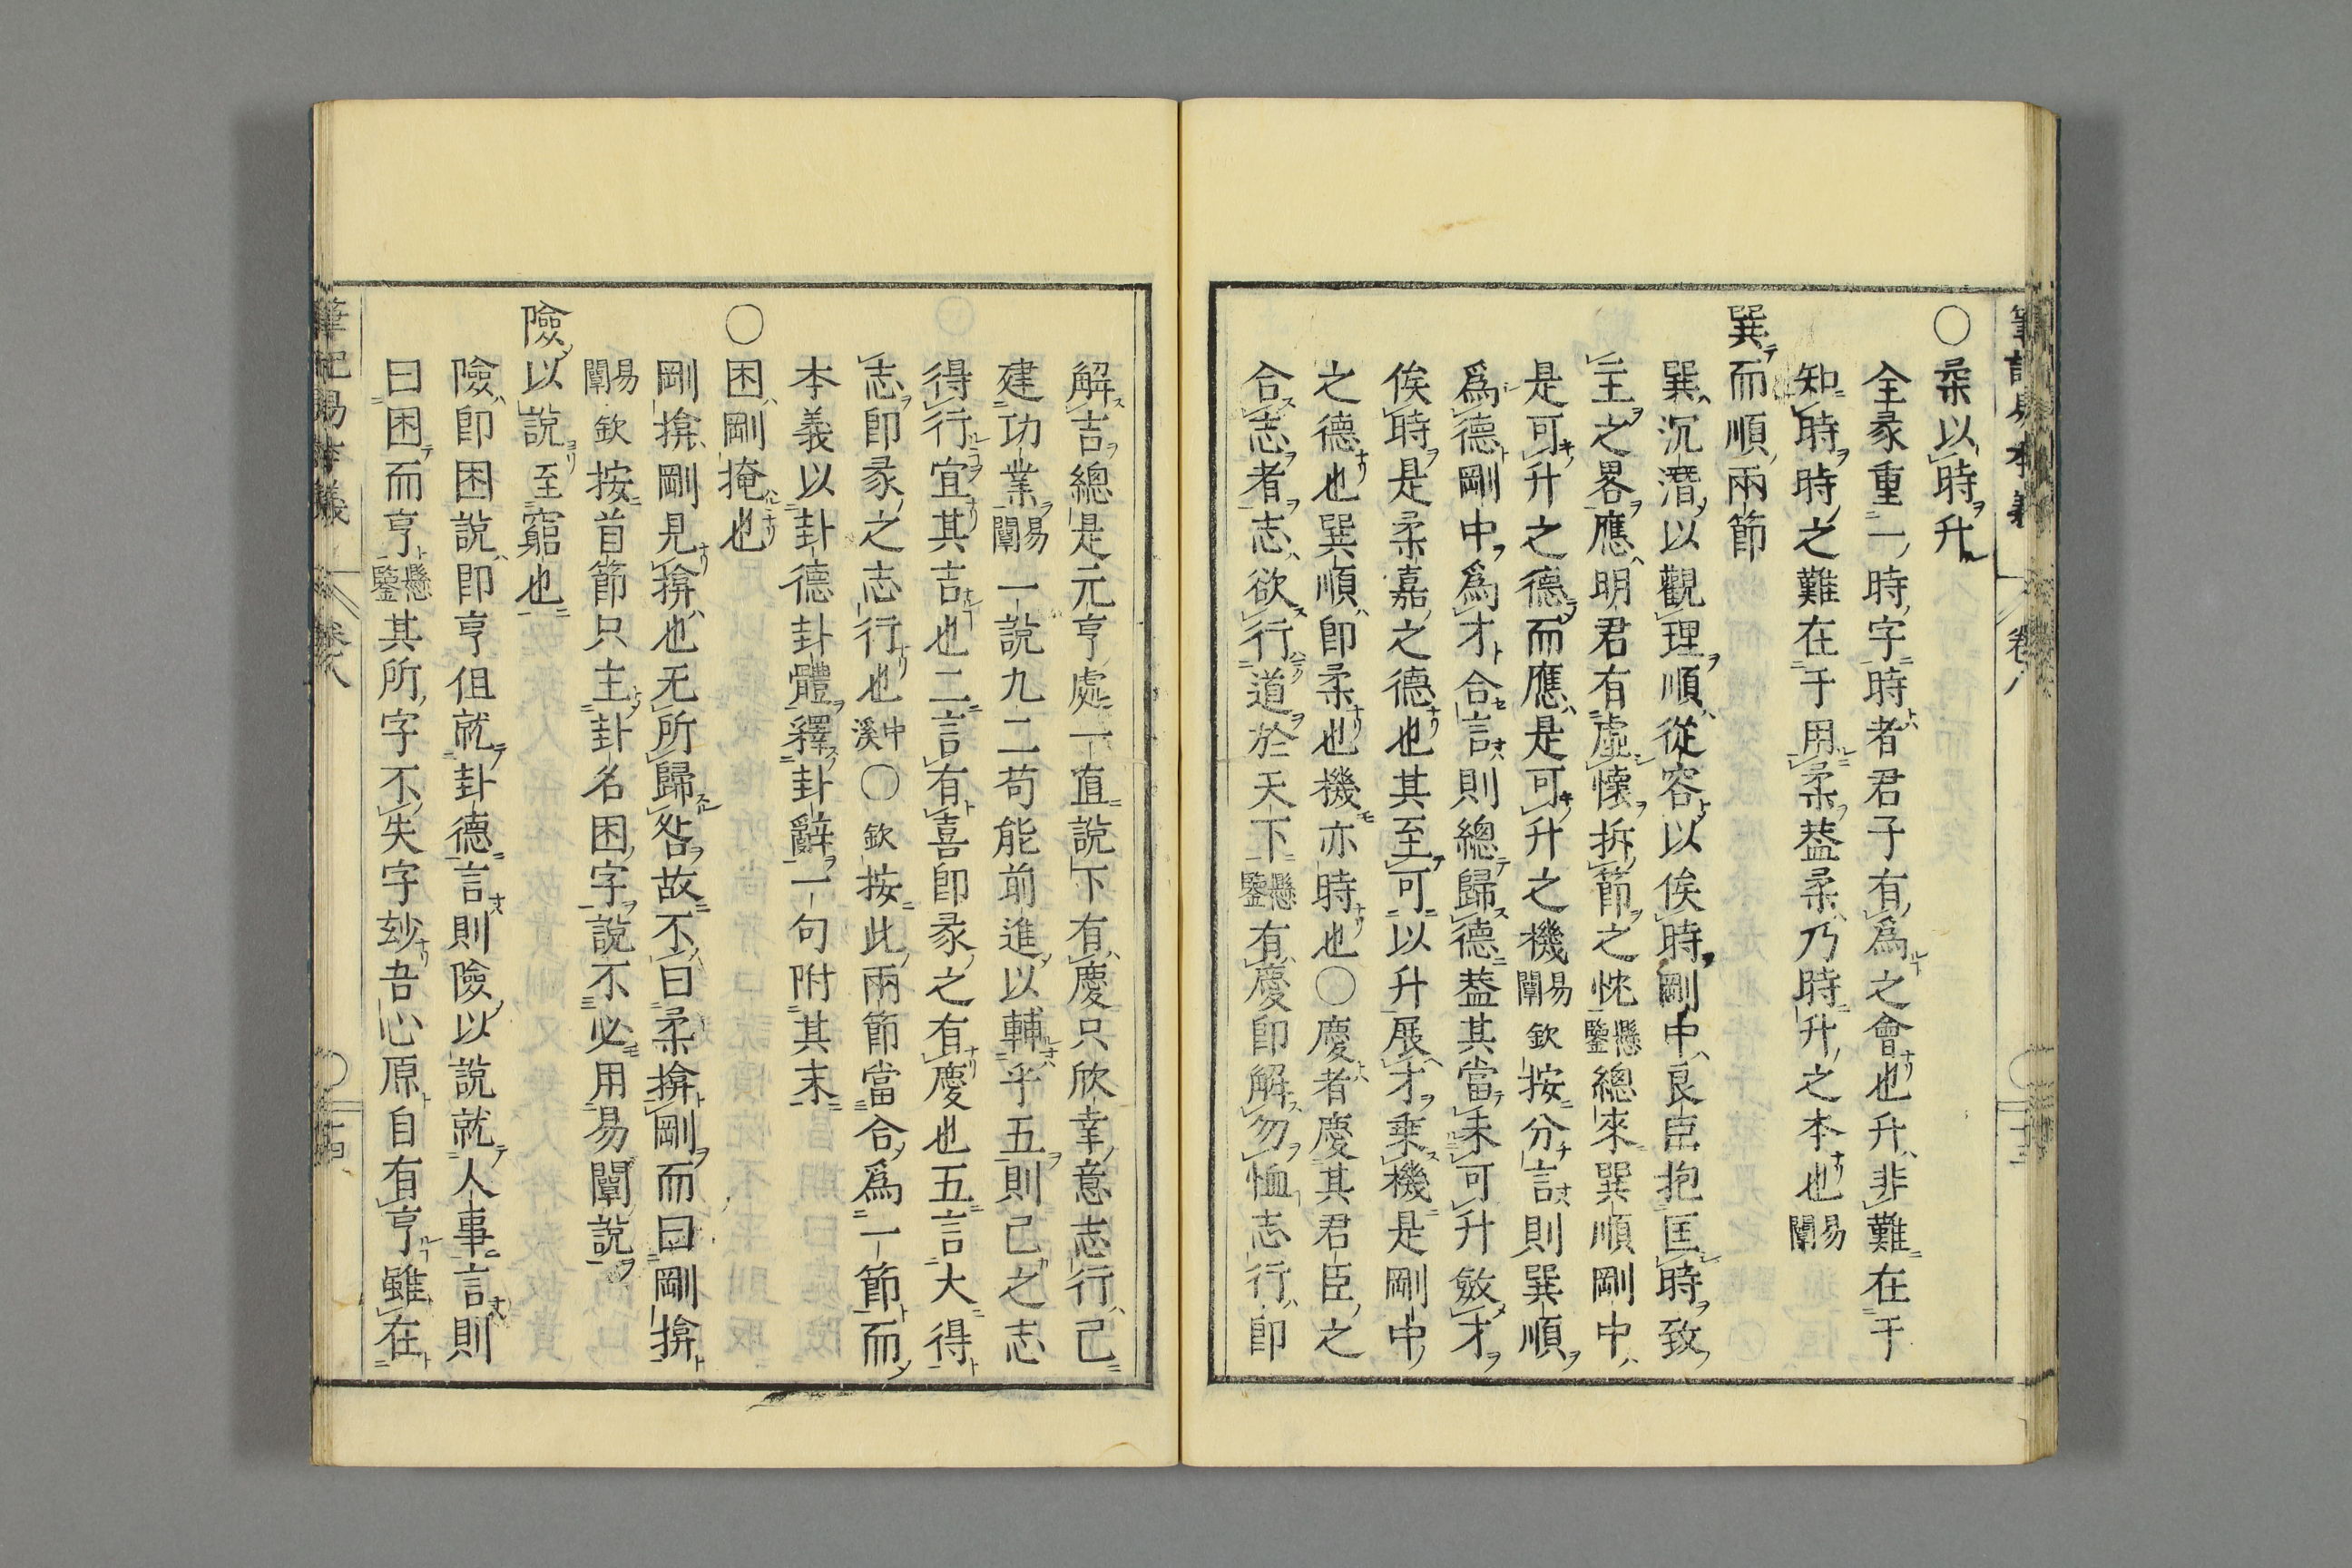 ○柔以時升
全彖重一時字時者君子有爲之會也升非難在于
知時時之難在于用柔葢柔乃時升之本也易闡
巽而順兩節
巽沉潛以觀理順從容以俟時剛中良臣抱匡時致
主之畧應明君有虛懷拆節之忱懸鑒總來巽順剛中
是可升之德而應是可升之機易闡欽按分言則巽順
爲德剛中爲才合言則總歸德葢其當未可升斂才
俟時是柔嘉之德也其至可以升展才乗機是剛中
之德也巽順卽柔也機亦時也○慶者慶其君臣之
合志者志欲行道於天下懸鑒有慶卽解勿恤志行卽
解吉總是元亨處一直說下有慶只欣幸意志行己
建功業易闡一說九二苟能前進以輔乎五則己之志
得行宜其吉也二言有喜卽彖之有慶也五言大得
志卽彖之志行也中溪○欽按此兩節當合爲一節而
本義以卦德卦體釋卦辭一句附其末
○困剛掩也
剛揜剛見揜也无所歸咎故不曰柔揜剛而曰剛揜
易闡欽按首節只主卦名困字說不必用易闡說
險以說至窮也
險卽困說卽亨但就卦德言則險以說就人事言則
曰困而亨懸鑒其所字不失字玅吾心原自有亨雖在
筆記易本義 卷八